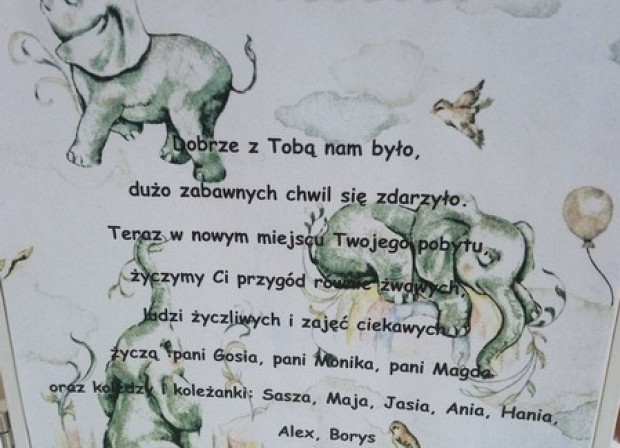 Dobrze z Tobą nam było,
dużo zabawnych chwil się zdarzyło.
Teraz w nowym miejscu Twojego pobytu,
życzymy Ci przygód równie żwawych,
ludzi życzliwych i zajęć ciekawych
życzą pani Gosia, pani Monika, pani Magda
oraz koledzy i koleżanki: Sasza, Maja, Jasia, Ania, Hania,
Alex, Borys